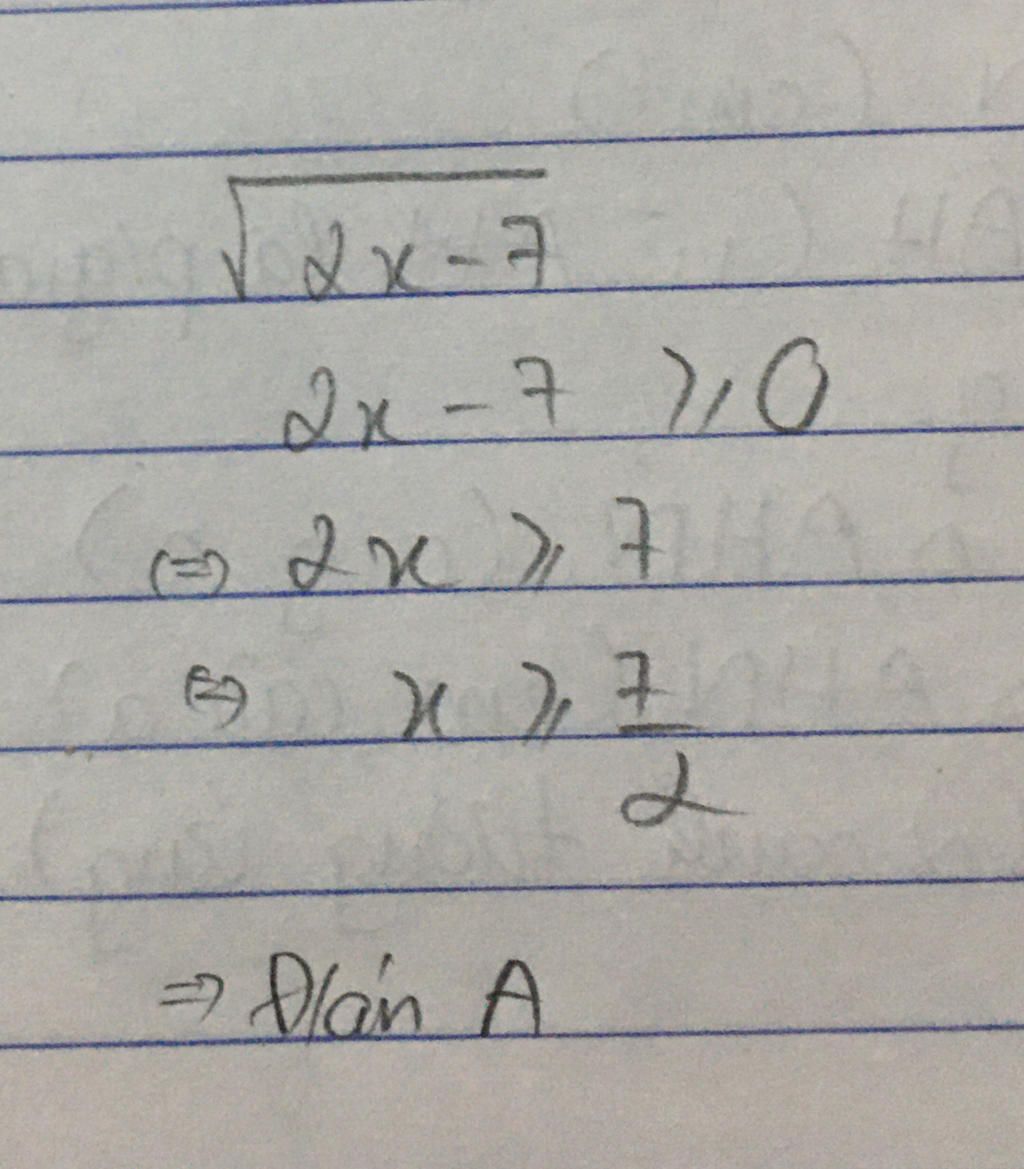 √2x-7
2x - 7 ⩾ 0
(=) 2x ⩾ 7
(=) x ⩾ 7/2
=> Đ/án A